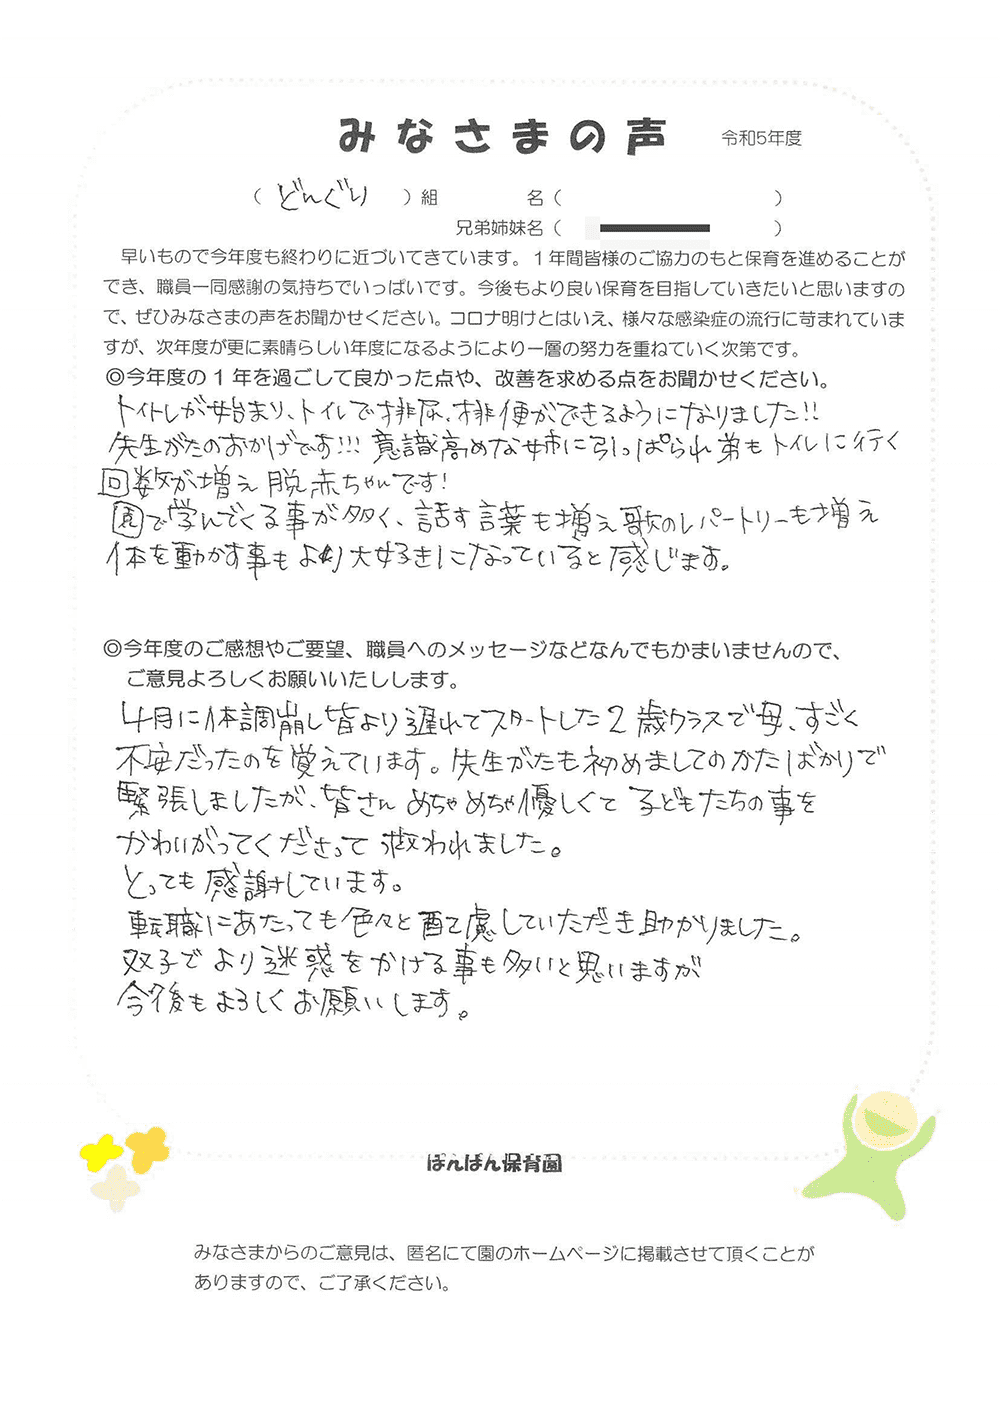 みなさまの声 令和5年度
（ どんぐり ）組 名（ ）
兄弟姉妹名（ ）
早いもので今年度も終わりに近づいてきています。1年間皆様のご協力のもと保育を進めることが
でき、職員一同感謝の気持ちでいっぱいです。今後もより良い保育を目指していきたいと思いますの
で、ぜひみなさまの声をお聞かせください。コロナ明けとはいえ、様々な感染症の流行に苛まれていま
すが、次年度が更に素晴らしい年度になるようにより一層の努力を重ねていく次第です。
◎今年度の1年を過ごして良かった点や、改善を求める点をお聞かせください。
トイトレが始まり、トイレで排尿、排便ができるようになりました!!
先生がたのおかげです!!! 意識高めな姉に引っぱられ弟もトイレに行く
回数が増え 脱赤ちゃんです!
園で学んでくる事が多く、話す言葉も増え歌のレパートリーも増え
体を動かす事もより大好きになっていると感じます。
◎今年度のご感想やご要望、職員へのメッセージなどなんでもかまいませんので、
ご意見よろしくお願いいたしします。
4月に体調崩し皆より遅れてスタートした2歳クラスで母、すごく
不安だったのを覚えています。先生がたも初めましてのかたばかりで
緊張しましたが、皆さん めちゃめちゃ優しくて 子どもたちの事を
かわいがってくださって 救われました。
とっても感謝しています。
転職にあたっても色々と配慮していただき助かりました。
双子でより迷惑をかける事も多いと思いますが
今後もよろしくお願いします。
ぽんぽん保育園
みなさまからのご意見は、匿名にて園のホームページに掲載させて頂くことが
ありますので、ご了承ください。